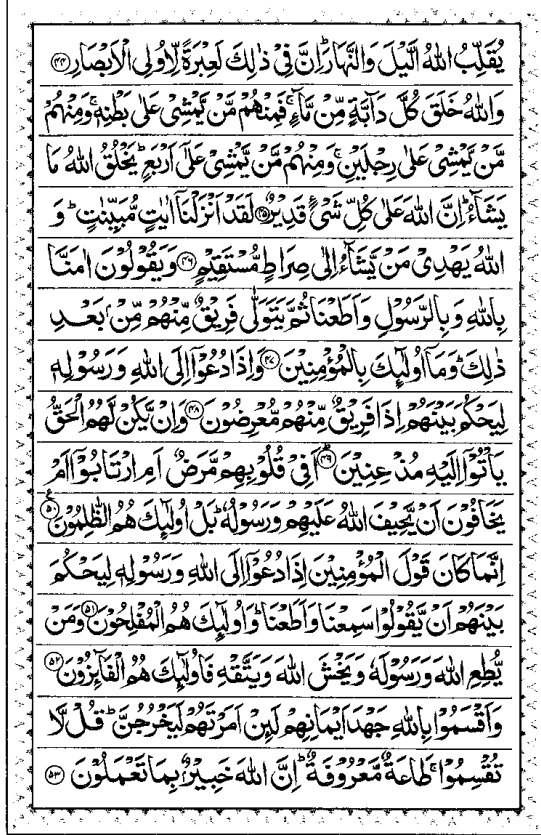 يُقَلِّبُ اللّٰهُ الَّيْلَ وَالنَّهَارَ ؕ اِنَّ فِیْ ذٰلِكَ لَعِبْرَةً لِّاُولِی الْاَبْصَارِ ﴿۴۴﴾
وَاللّٰهُ خَلَقَ كُلَّ دَآبَّةٍ مِّنْ مَّآءٍ ۚ فَمِنْهُمْ مَّنْ يَّمْشِیْ عَلٰی بَطْنِهٖ ۚ وَمِنْهُمْ
مَّنْ يَّمْشِیْ عَلٰی رِجْلَيْنِ ۚ وَمِنْهُمْ مَّنْ يَّمْشِیْ عَلٰۤی اَرْبَعٍ ؕ يَخْلُقُ اللّٰهُ مَا
يَشَآءُ ؕ اِنَّ اللّٰهَ عَلٰی كُلِّ شَیْءٍ قَدِيْرٌ ﴿۴۵﴾ لَقَدْ اَنْزَلْنَاۤ اٰيٰتٍ مُّبَيِّنٰتٍ ؕ وَ
اللّٰهُ يَهْدِیْ مَنْ يَّشَآءُ اِلٰی صِرَاطٍ مُّسْتَقِيْمٍ ﴿۴۶﴾ وَيَقُوْلُوْنَ اٰمَنَّا
بِاللّٰهِ وَبِالرَّسُوْلِ وَاَطَعْنَا ثُمَّ يَتَوَلّٰی فَرِيْقٌ مِّنْهُمْ مِّنْۢ بَعْدِ
ذٰلِكَ ؕ وَمَاۤ اُولٰٓئِكَ بِالْمُؤْمِنِيْنَ ﴿۴۷﴾ وَاِذَا دُعُوْۤا اِلَی اللّٰهِ وَرَسُوْلِهٖ
لِيَحْكُمَ بَيْنَهُمْ اِذَا فَرِيْقٌ مِّنْهُمْ مُّعْرِضُوْنَ ﴿۴۸﴾ وَاِنْ يَّكُنْ لَّهُمُ الْحَقُّ
يَاْتُوْۤا اِلَيْهِ مُذْعِنِيْنَ ؕ ﴿۴۹﴾ اَفِیْ قُلُوْبِهِمْ مَّرَضٌ اَمِ ارْتَابُوْۤا اَمْ
يَخَافُوْنَ اَنْ يَّحِيْفَ اللّٰهُ عَلَيْهِمْ وَرَسُوْلُهٗ ؕ بَلْ اُولٰٓئِكَ هُمُ الظّٰلِمُوْنَ ﴿۵۰﴾ ع
اِنَّمَا كَانَ قَوْلَ الْمُؤْمِنِيْنَ اِذَا دُعُوْۤا اِلَی اللّٰهِ وَرَسُوْلِهٖ لِيَحْكُمَ
بَيْنَهُمْ اَنْ يَّقُوْلُوْا سَمِعْنَا وَاَطَعْنَا ؕ وَاُولٰٓئِكَ هُمُ الْمُفْلِحُوْنَ ﴿۵۱﴾ وَمَنْ
يُّطِعِ اللّٰهَ وَرَسُوْلَهٗ وَيَخْشَ اللّٰهَ وَيَتَّقْهِ فَاُولٰٓئِكَ هُمُ الْفَآئِزُوْنَ ﴿۵۲﴾
وَاَقْسَمُوْا بِاللّٰهِ جَهْدَ اَيْمَانِهِمْ لَئِنْ اَمَرْتَهُمْ لَيَخْرُجُنَّ ؕ قُلْ لَّا
تُقْسِمُوْا ۚ طَاعَةٌ مَّعْرُوْفَةٌ ؕ اِنَّ اللّٰهَ خَبِيْرٌۢ بِمَا تَعْمَلُوْنَ ﴿۵۳﴾